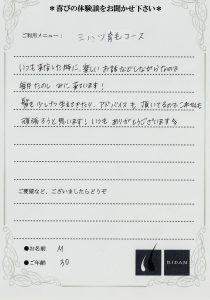 ＊喜びの体験談をお聞かせ下さい＊
ご利用メニュー：ミハツ育毛コース
いつも来店した時に、楽しいお話などしながらなので
毎月たのしみに来ています！
髪も少しずつ生えてきたり、アドバイスも頂いてるのでこれからも
頑張ろうと思います！いつもありがとうございます
ご要望など、ございましたらどうぞ
●お名前 M
●ご年齢 30
BIDAN